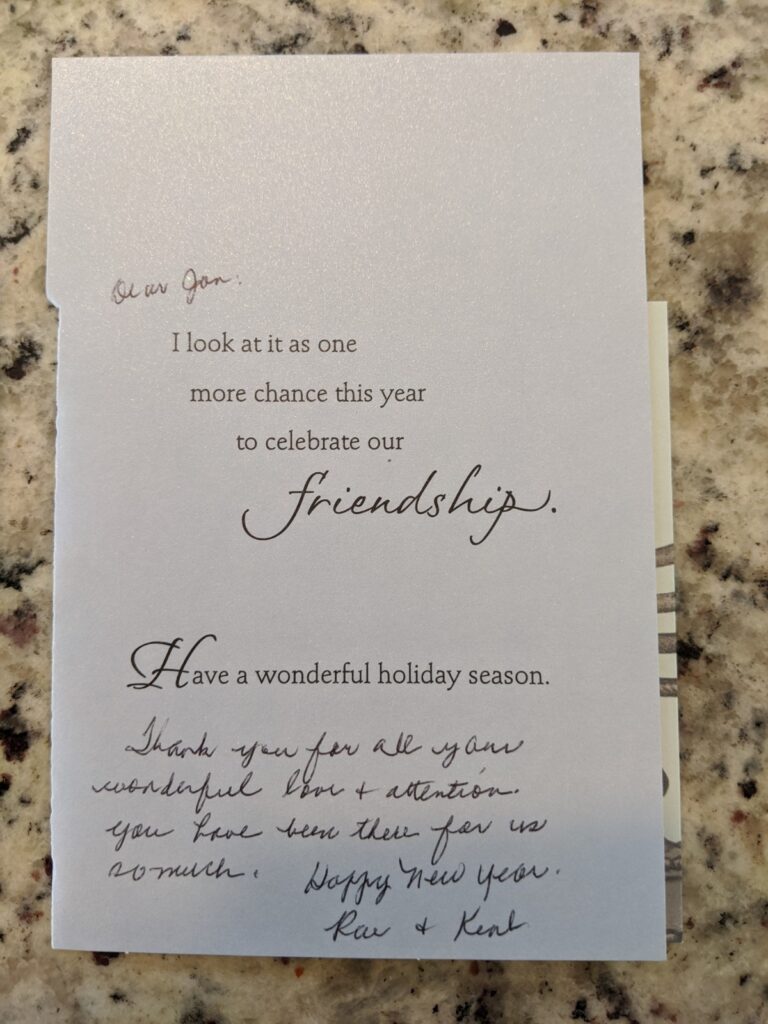 Dear Jon:
I look at it as one
more chance this year
to celebrate our
friendship.
Have a wonderful holiday season.
Thank you for all your
wonderful love + attention.
you have been there for us
so much. Happy New Year.
Rae +